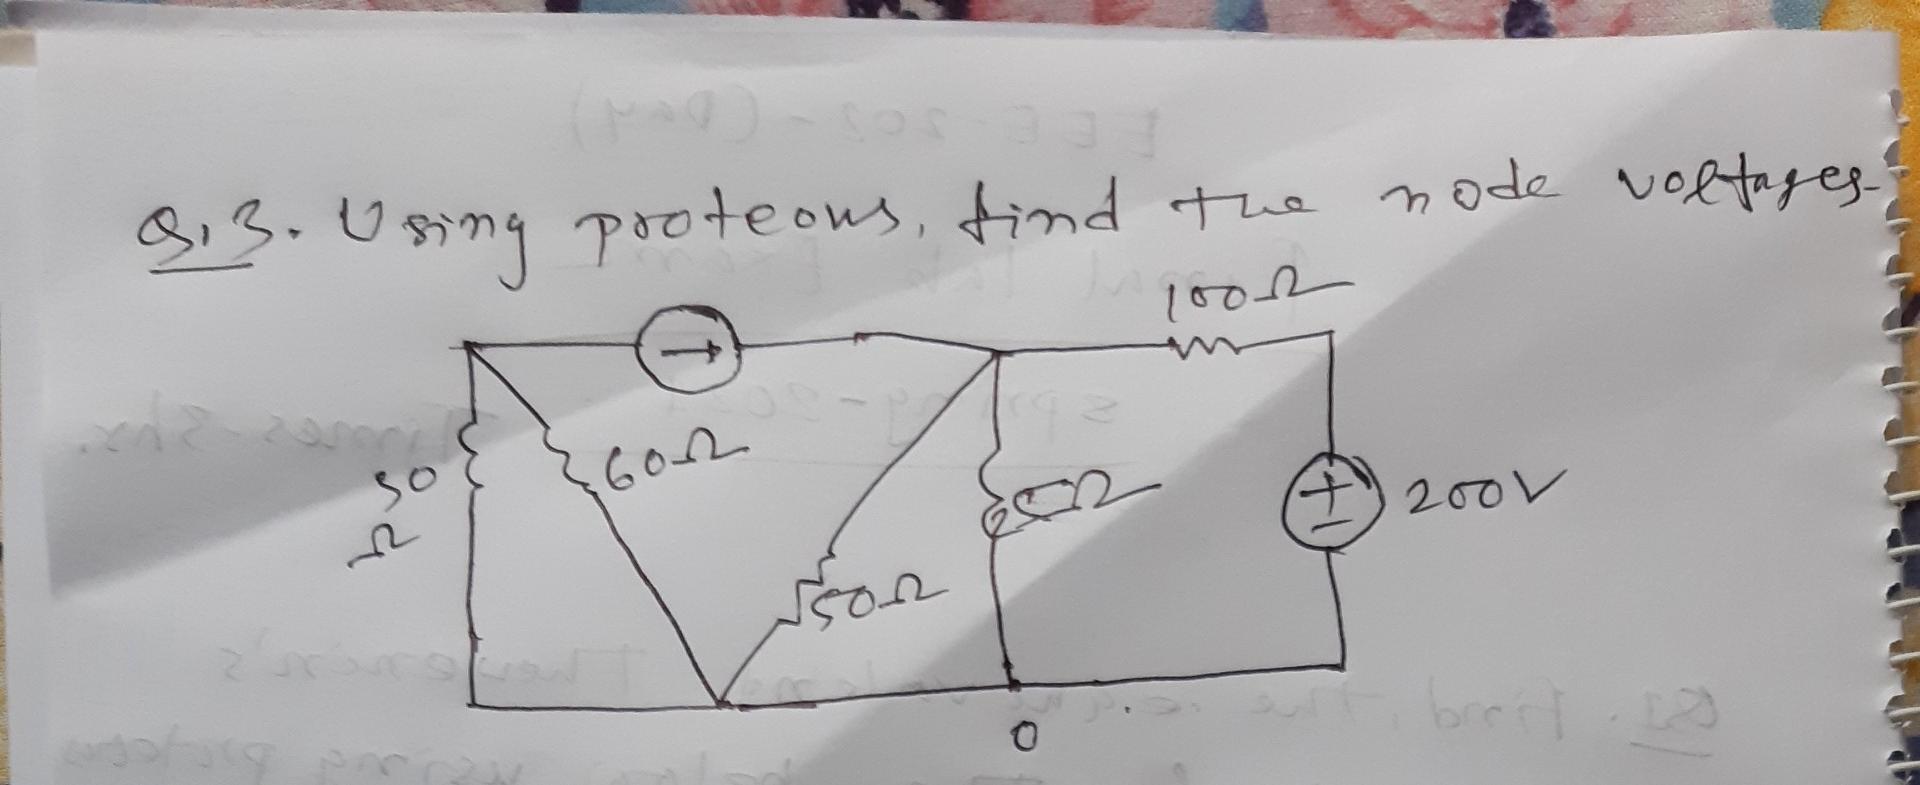 Q.3. Using proteous, find the node voltages.
100Ω
60Ω
Ω
200V
50Ω
0